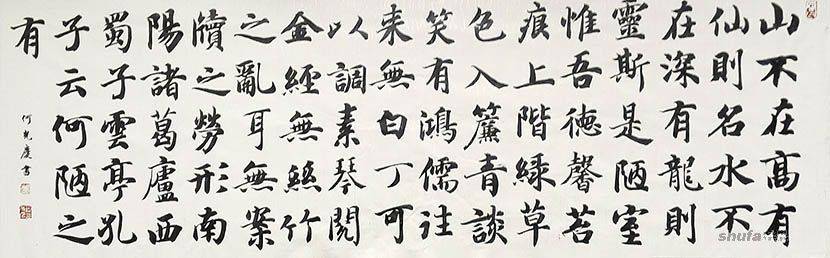 山不在高有
仙則名水不
在深有龍則
靈斯是陋室
惟吾德馨苔
痕上階緑草
色入簾青談
笑有鴻儒往
来無白丁可
以調素琴閲
金經無絲竹
之亂耳無案
牘之勞形南
陽諸葛廬西
蜀子雲亭孔
子云何陋之
有
何慶書
shufa